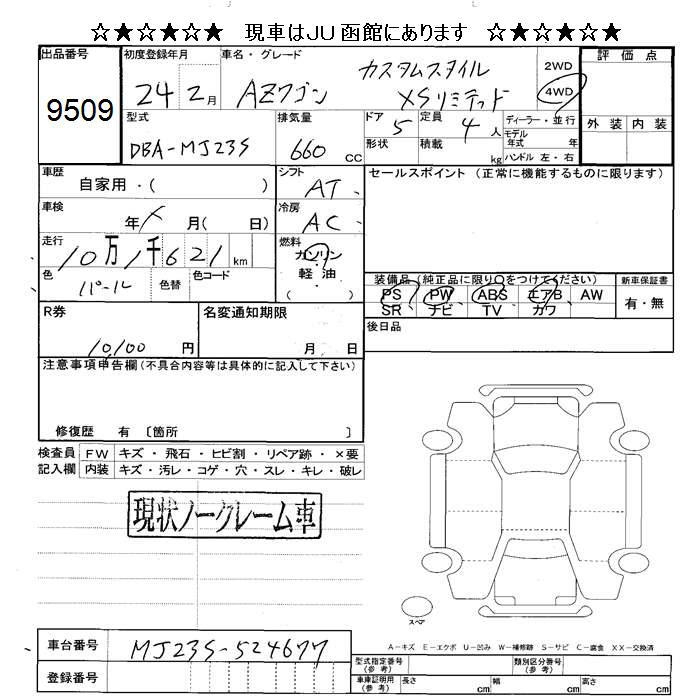 ☆★☆★☆★ 現車はJU函館にあります ☆★☆★☆★
出品番号 初度登録年月 車名・グレード 評価点
9509 24年 2月 AZワゴン カスタムスタイル XSリミテッド 2WD 4WD
型式 排気量 ドア 定員 ディーラー・並行 外装 内装
DBA-MJ23S 660 CC 5 4 人 モデル年式 年
形状 積載 kg ハンドル 左・右
車歴 シフト セールスポイント(正常に機能するものに限ります)
自家用・( ) AT
車検 冷房
年 月( 日) AC
走行 燃料
10万1千621 km ガソリン
色 色替 色コード 軽油
パール ( )
装備品(純正品に限り○をつけてください) 新車保証書
PS PW ABS エアB AW 有・無
SR ナビ TV カワ
R券 名変通知期限 後日品
10,100 円 月 日
注意事項申告欄(不具合内容等は具体的に記入して下さい)
修復歴 有 〔箇所 〕
検査員 FW キズ・飛石・ヒビ割・リペア跡・×要
記入欄 内装 キズ・汚レ・コゲ・穴・スレ・キレ・破レ
現状ノークレーム車
スペア
車台番号 MJ23S-524677
A-キズ E-エクボ U-凹み W-補修跡 S-サビ C-腐食 XX-交換済
型式指定番号(参考) 類別区分番号(参考)
登録番号 車庫証明用(参考) 長さ cm 幅 cm 高さ cm